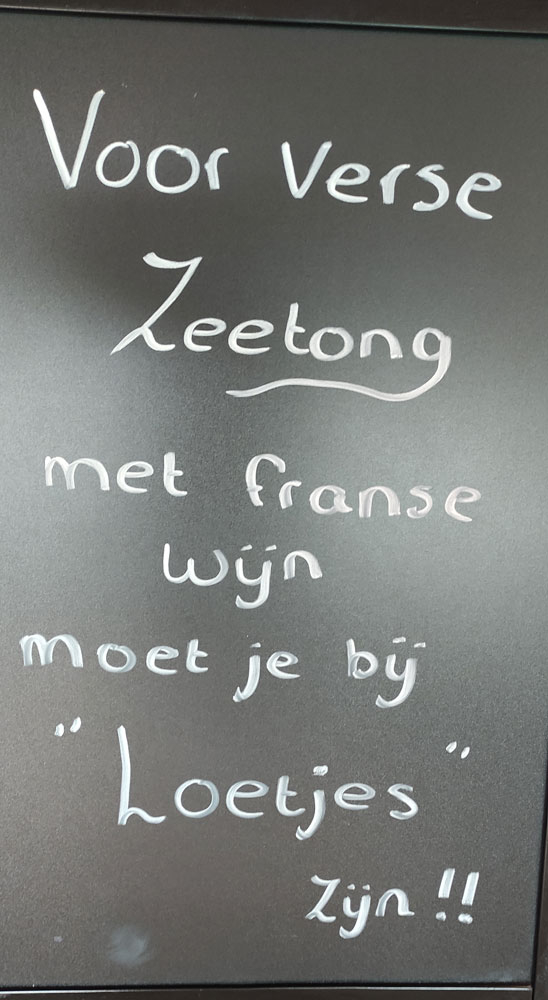 Voor verse
Zeetong
met franse
wijn
moet je bij
"Loetjes"
zijn!!